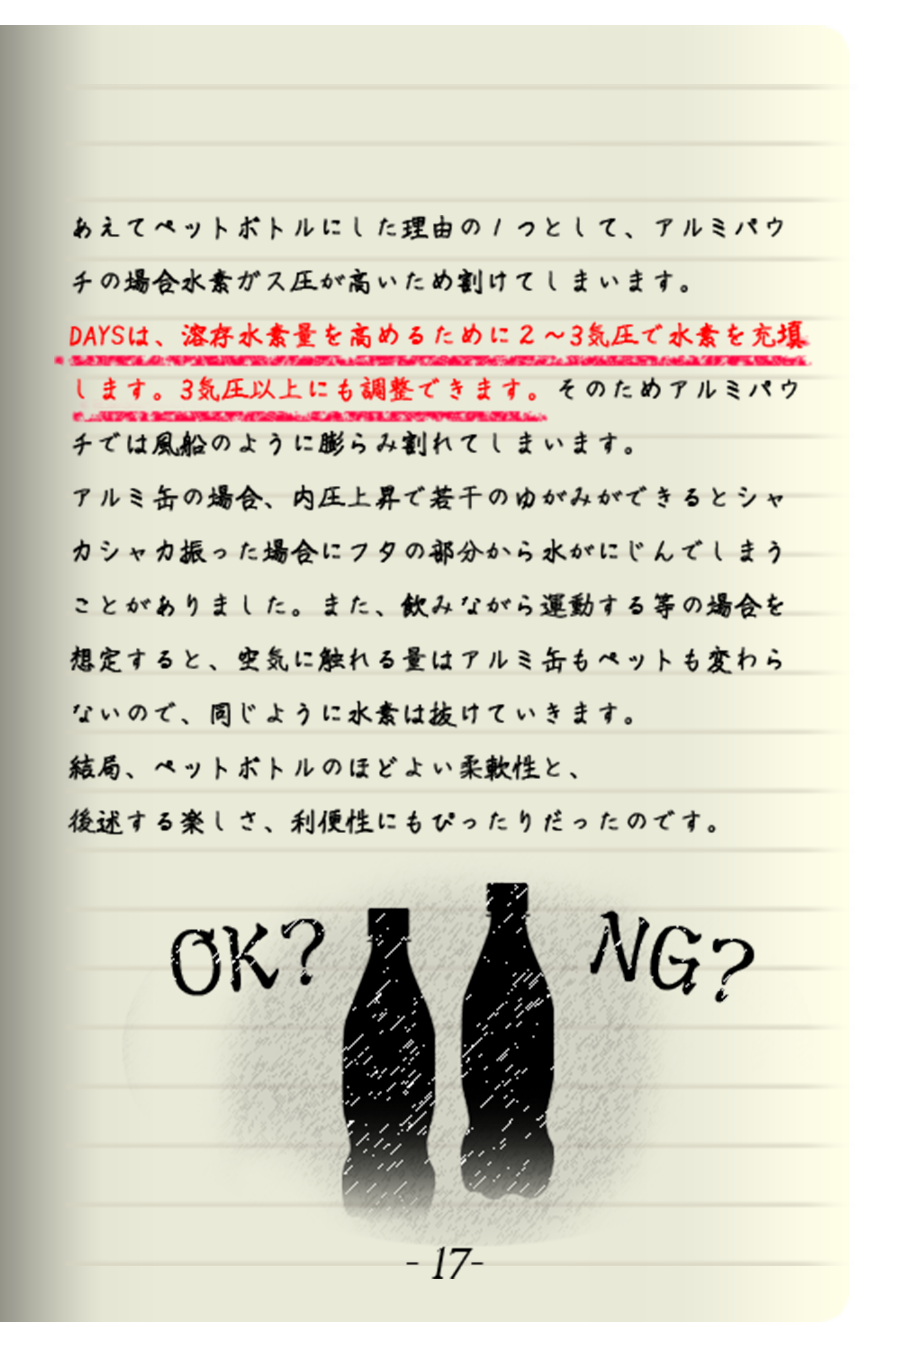 あえてペットボトルにした理由の1つとして、アルミパウ
チの場合水素ガス圧が高いため割けてしまいます。
DAYSは、溶存水素量を高めるために2～3気圧で水素を充填
します。3気圧以上にも調整できます。そのためアルミパウ
チでは風船のように膨らみ割れてしまいます。
アルミ缶の場合、内圧上昇で若干のゆがみができるとシャ
カシャカ振った場合にフタの部分から水がにじんでしまう
ことがありました。また、飲みながら運動する等の場合を
想定すると、空気に触れる量はアルミ缶もペットも変わら
ないので、同じように水素は抜けていきます。
結局、ペットボトルのほどよい柔軟性と、
後述する楽しさ、利便性にもぴったりだったのです。
OK? NG?
- 17-